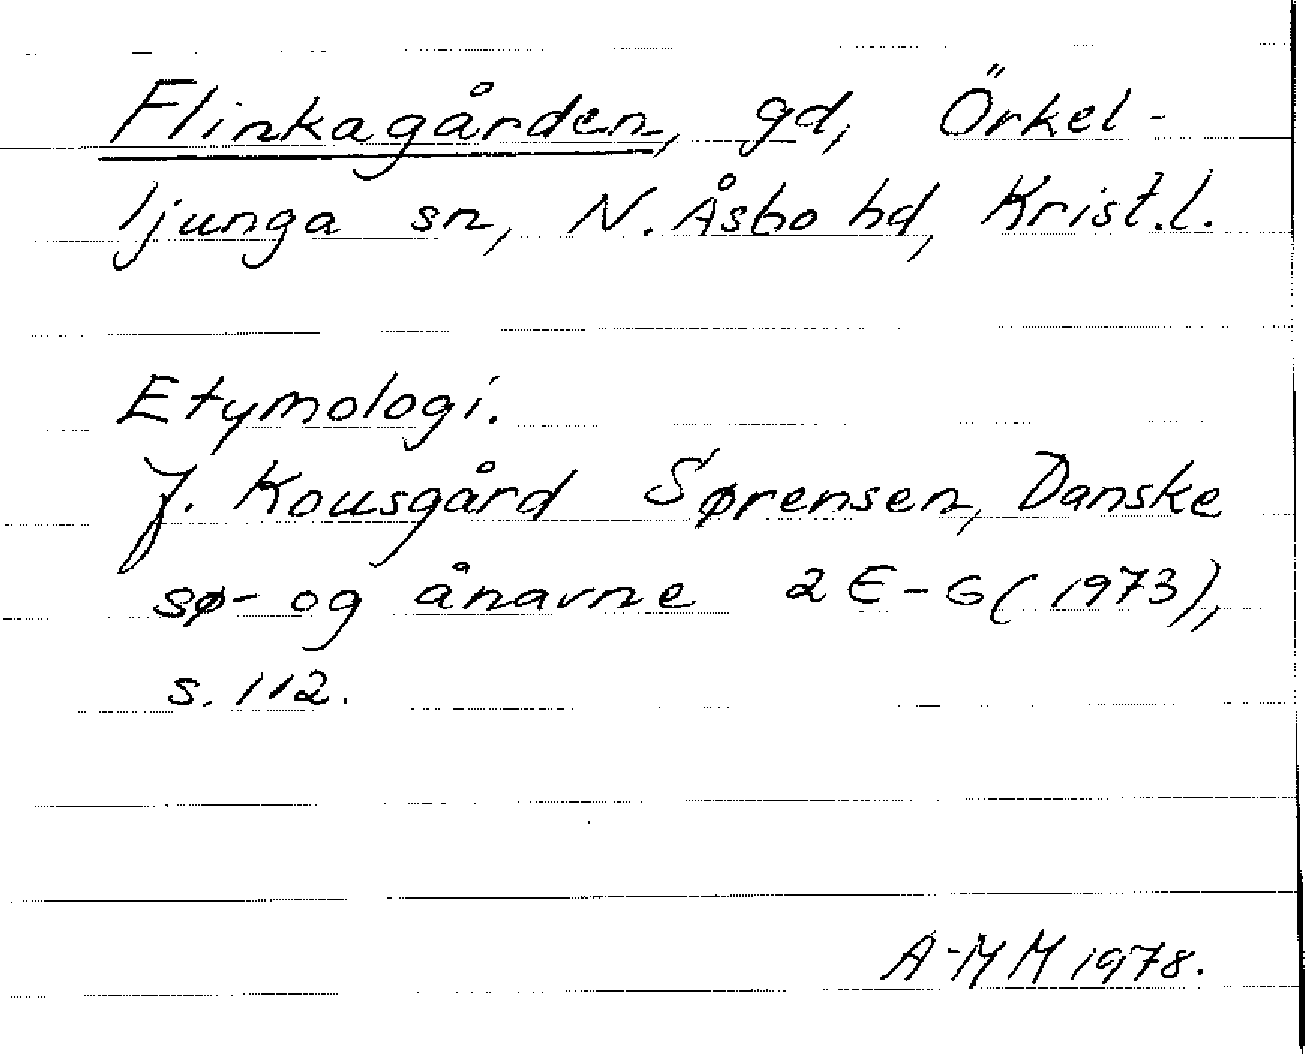 Flinkagården, gd, Örkel-
ljunga sn, N. Åsbo hd, Krist.l.
Etymologi.
J. Kousgård Sørensen, Danske
sø- og ånavne 2 E-G (1973),
s. 112.
A-MM 1978.